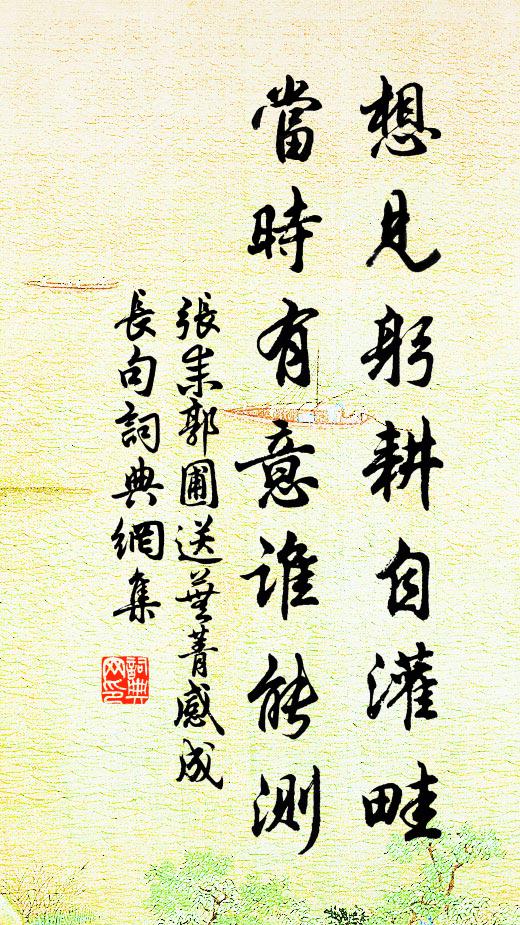 想見躬耕自灌畦
當時有意誰能測
張耒郭圃送蕪菁感成
長句詞典網集
詞典
网印